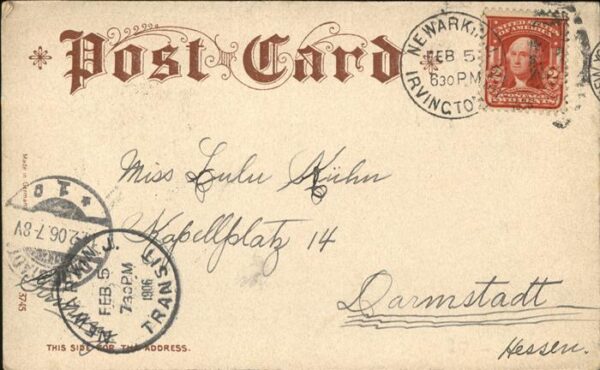 Post Card
NEWARK.
FEB 5
630 PM
IRVINGTO
UNITED STATES
OF AMERICA
2 2
POSTAGE
TWO CENTS
Miss Lulu Kühn
Kapellplatz 14
Darmstadt
Hessen.
Made in Germany
* 1 0
.2.06.7-8V
NEWARK, N.J.
FEB 5
730 PM
1906
TRANSIT
3745
THIS SIDE FOR THE ADDRESS.